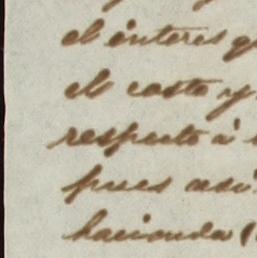 el interes q
el costo y
respecto á
pues asi
hacienda (